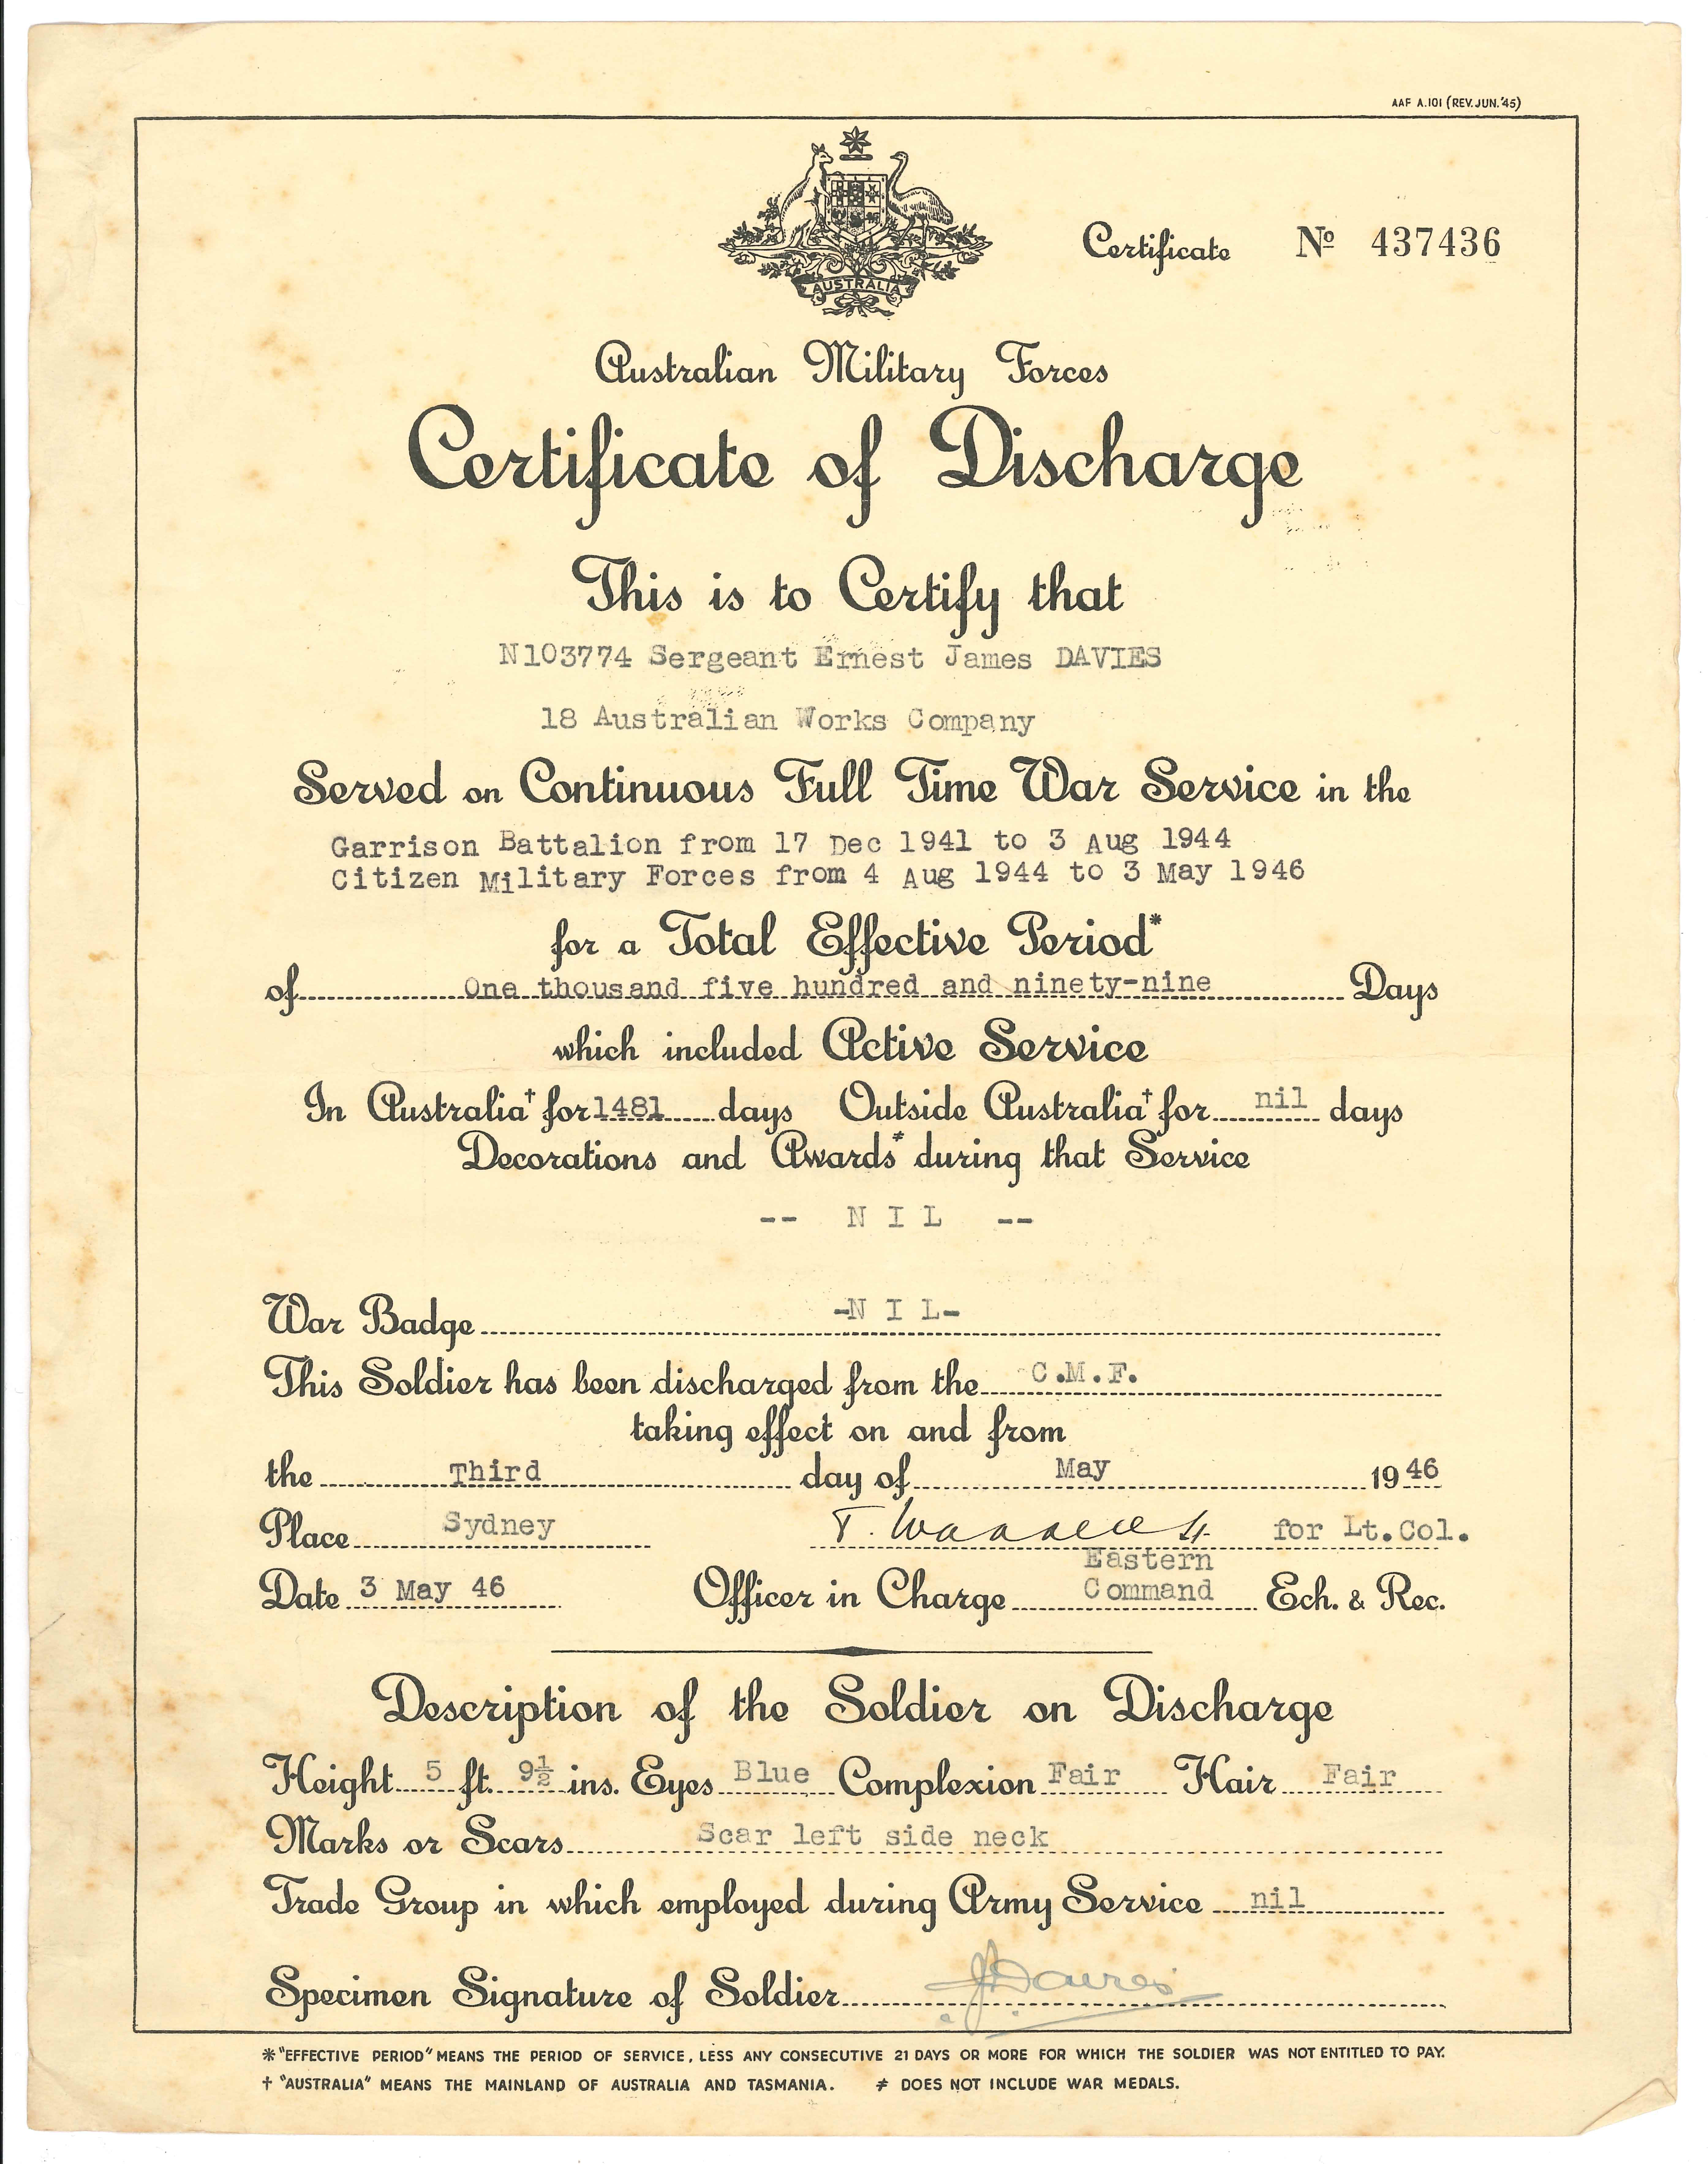 AAF A.101 (REV. JUN. '45)
AUSTRALIA
Certificate No 437436
Australian Military Forces
Certificate of Discharge
This is to Certify that
N103774 Sergeant Ernest James DAVIES
18 Australian Works Company
Served on Continuous Full Time War Service in the
Garrison Battalion from 17 Dec 1941 to 3 Aug 1944
Citizen Military Forces from 4 Aug 1944 to 3 May 1946
for a Total Effective Period*
of One thousand five hundred and ninety-nine Days
which included Active Service
In Australia† for 1481 days Outside Australia† for nil days
Decorations and Awards≠ during that Service
-- N I L --
War Badge -N I L-
This Soldier has been discharged from the C.M.F.
taking effect on and from
the Third day of May 1946
Place Sydney T. for Lt.Col.
Eastern
Date 3 May 46 Officer in Charge Command Ech. & Rec.
Description of the Soldier on Discharge
Height 5 ft. 9½ ins. Eyes Blue Complexion Fair Hair Fair
Marks or Scars Scar left side neck
Trade Group in which employed during Army Service nil
Specimen Signature of Soldier EJDavies
* "EFFECTIVE PERIOD" MEANS THE PERIOD OF SERVICE, LESS ANY CONSECUTIVE 21 DAYS OR MORE FOR WHICH THE SOLDIER WAS NOT ENTITLED TO PAY.
† "AUSTRALIA" MEANS THE MAINLAND OF AUSTRALIA AND TASMANIA. ≠ DOES NOT INCLUDE WAR MEDALS.